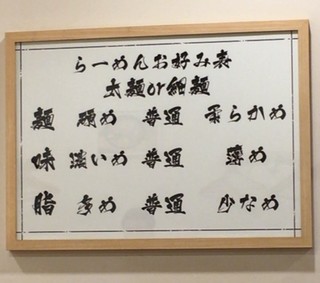 らーめんお好み表
太麺or細麺
麺 硬め 普通 柔らかめ
味 濃いめ 普通 薄め
脂 多め 普通 少なめ